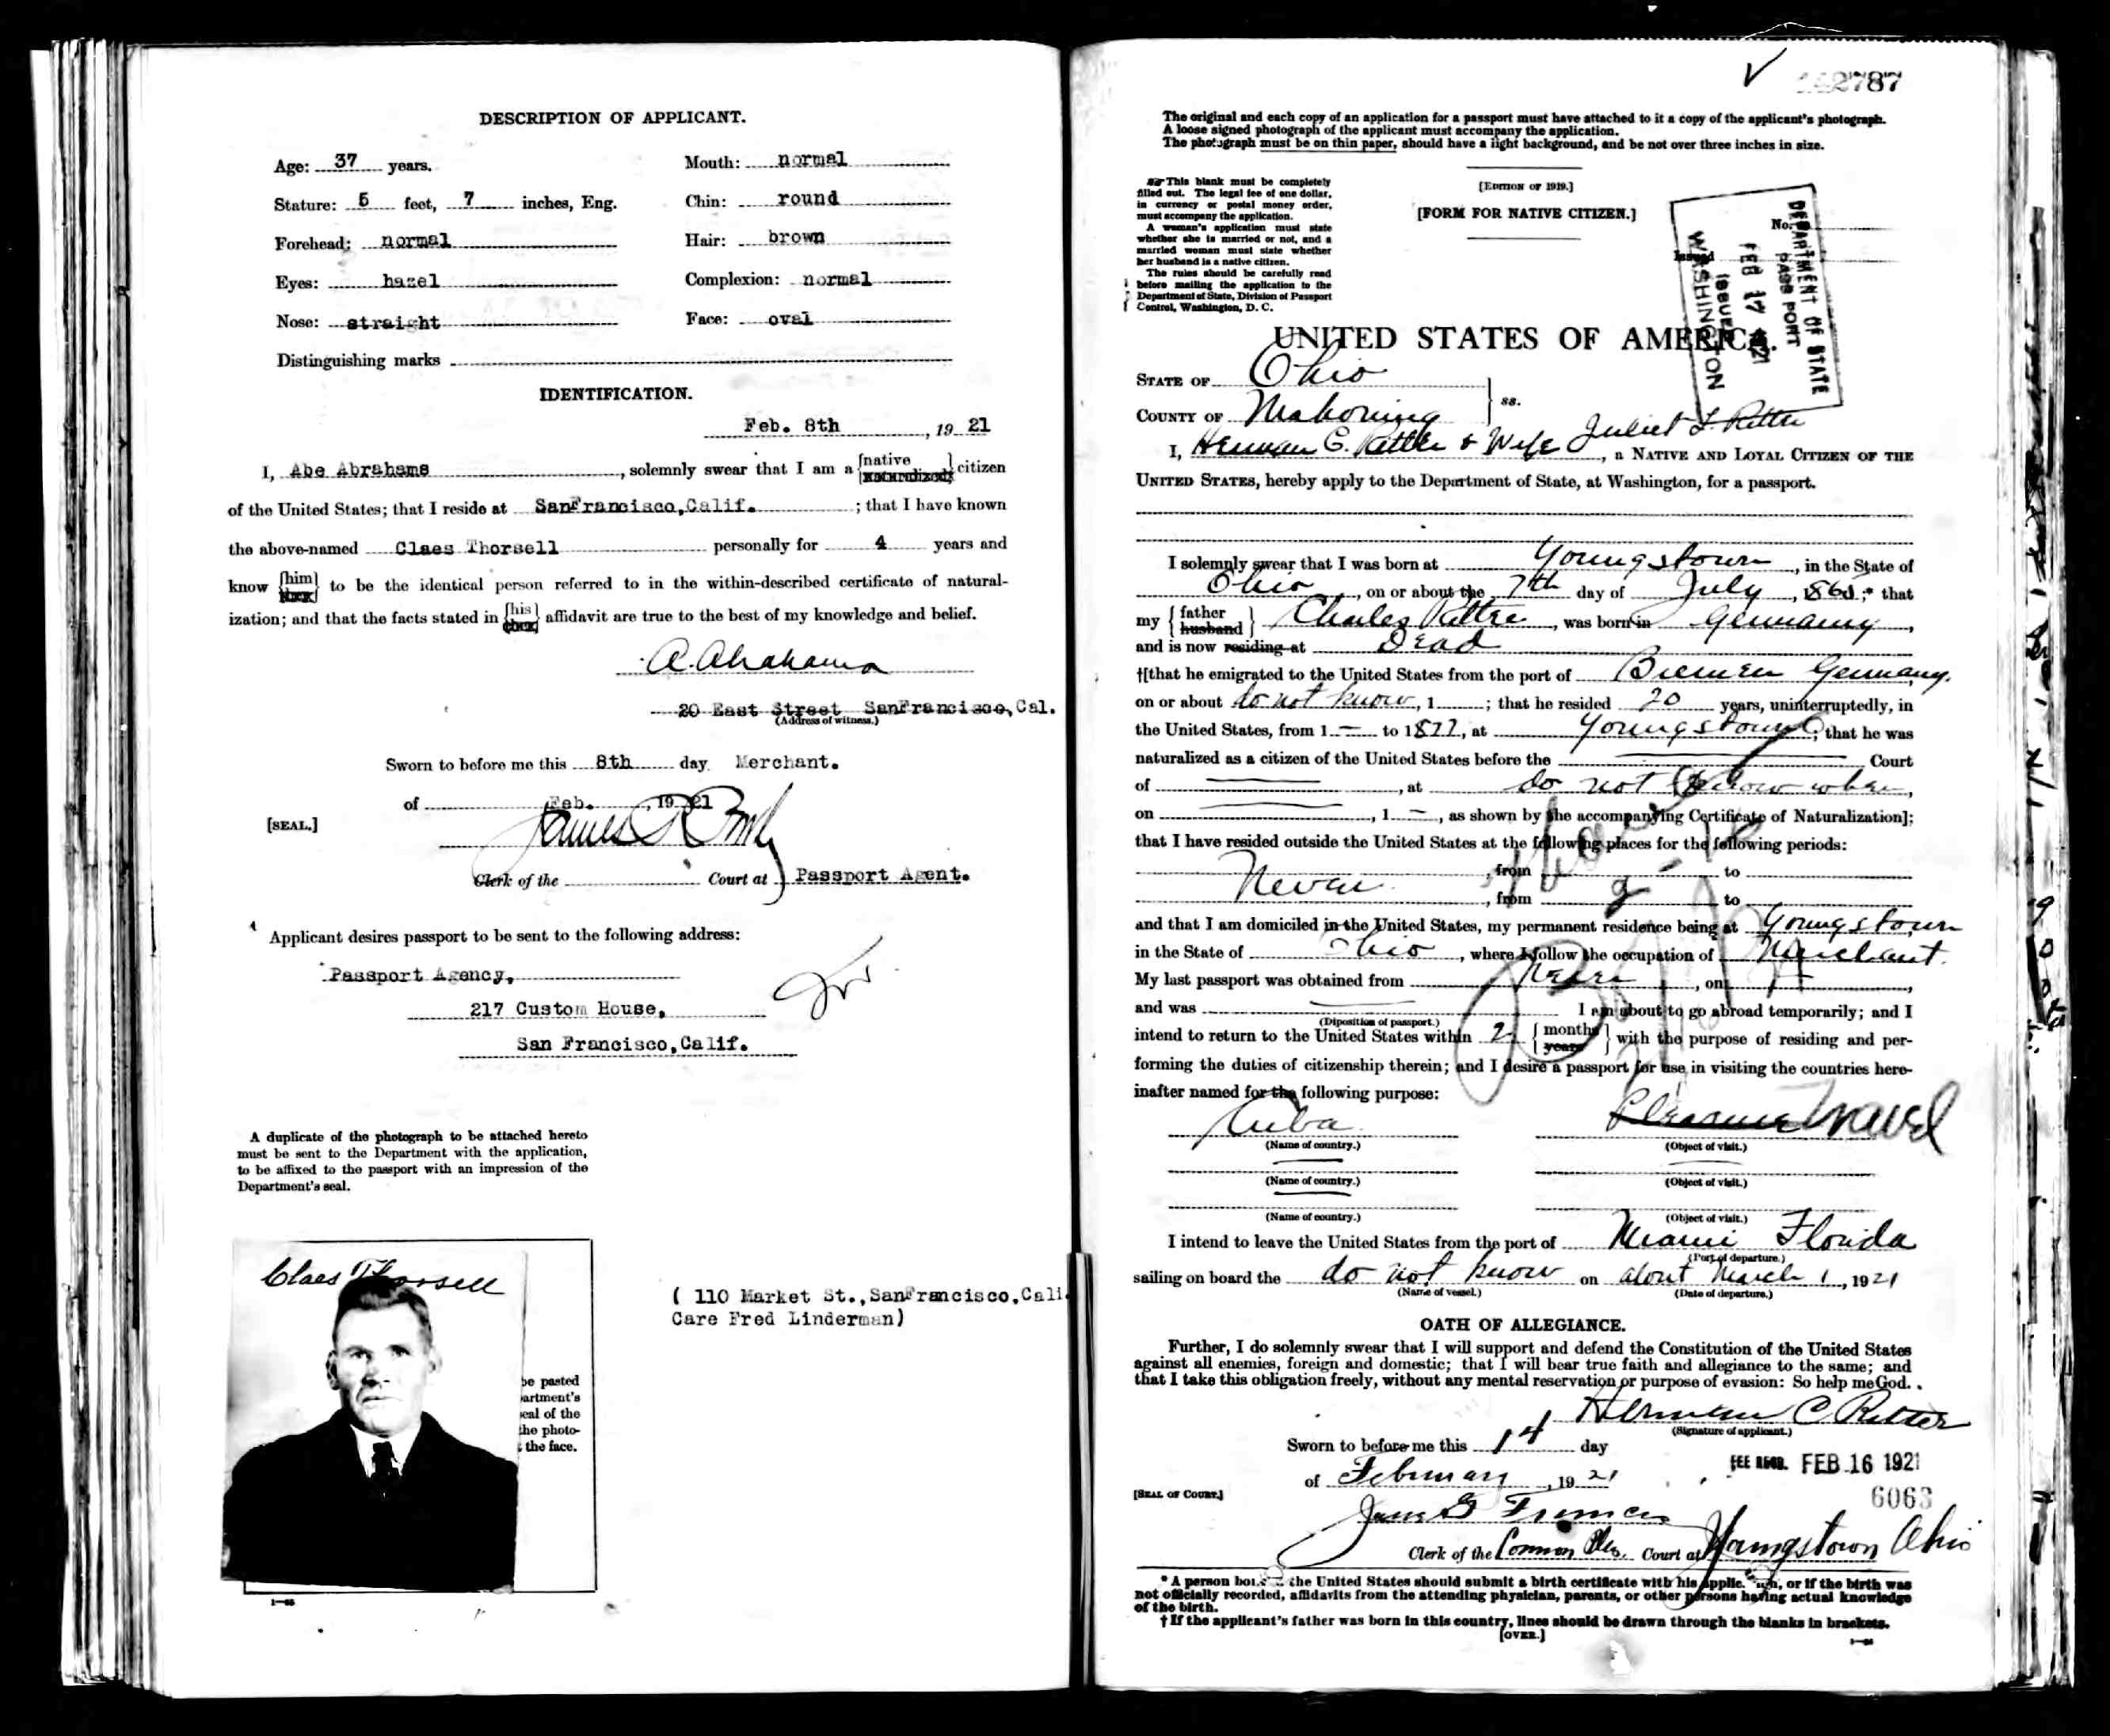 DESCRIPTION OF APPLICANT.
Age: 37 years.
Mouth: normal
Stature: 5 feet, 7 inches, Eng.
Chin: round
Forehead: normal
Hair: brown
Eyes: hazel
Complexion: normal
Nose: straight
Face: oval
Distinguishing marks
IDENTIFICATION.
Feb. 8th, 19 21
I, Abe Abrahams, solemnly swear that I am a {native naturalized} citizen
of the United States; that I reside at SanFrancisco,Calif.; that I have known
the above-named Claes Thorsell personally for 4 years and
know {him her} to be the identical person referred to in the within-described certificate of natural-
ization; and that the facts stated in {his her} affidavit are true to the best of my knowledge and belief.
A. Abrahams
20 East Street SanFrancisco, Cal.
(Address of witness.)
Sworn to before me this 8th day Merchant.
of Feb., 19 21
[SEAL.]
James R
Clerk of the Court at Passport Agent.
Applicant desires passport to be sent to the following address:
Passport Agency,
217 Custom House,
San Francisco,Calif.
A duplicate of the photograph to be attached hereto
must be sent to the Department with the application,
to be affixed to the passport with an impression of the
Department's seal.
Claes Thorsell
be pasted
artment's
seal of the
the photo-
the face.
( 110 Market St.,SanFrancisco,Cali
Care Fred Linderman)
1—65
2787
The original and each copy of an application for a passport must have attached to it a copy of the applicant's photograph.
A loose signed photograph of the applicant must accompany the application.
The photograph must be on thin paper, should have a light background, and be not over three inches in size.
This blank must be completely
filled out. The legal fee of one dollar,
in currency or postal money order,
must accompany the application.
A woman's application must state
whether she is married or not, and a
married woman must state whether
her husband is a native citizen.
The rules should be carefully read
before mailing the application to the
Department of State, Division of Passport
Control, Washington, D. C.
[EDITION OF 1919.]
[FORM FOR NATIVE CITIZEN.]
No.
Issued
DEPARTMENT OF STATE
PASSPORT
FEB 17 1921
ISSUED
WASHINGTON
UNITED STATES OF AMERICA.
STATE OF Ohio
COUNTY OF Mahoning
ss.
I, Herman C. Ritter & Wife Juliet F. Ritter, a NATIVE AND LOYAL CITIZEN OF THE
UNITED STATES, hereby apply to the Department of State, at Washington, for a passport.
I solemnly swear that I was born at Youngstown, in the State of
Ohio, on or about the 7th day of July, 186 ;* that
my {father husband} Charles Ritter, was born in Germany,
and is now residing at Dead
†[that he emigrated to the United States from the port of Bremen Germany.
on or about do not know, 1 ; that he resided 20 years, uninterruptedly, in
the United States, from 1 — to 1877, at Youngstown O; that he was
naturalized as a citizen of the United States before the Court
of , at do not know when,
on , 1 —, as shown by the accompanying Certificate of Naturalization];
that I have resided outside the United States at the following places for the following periods:
, from to
Never, from to
and that I am domiciled in the United States, my permanent residence being at Youngstown
in the State of Ohio, where I follow the occupation of Merchant.
My last passport was obtained from Never, on ,
and was I am about to go abroad temporarily; and I
(Diposition of passport.)
intend to return to the United States within 2 {months years} with the purpose of residing and per-
forming the duties of citizenship therein; and I desire a passport for use in visiting the countries here-
inafter named for the following purpose:
Cuba Pleasure Travel
(Name of country.) (Object of visit.)
(Name of country.) (Object of visit.)
(Name of country.) (Object of visit.)
I intend to leave the United States from the port of Miami Florida
(Port of departure.)
sailing on board the do not know on about March 1, 1921
(Name of vessel.) (Date of departure.)
OATH OF ALLEGIANCE.
Further, I do solemnly swear that I will support and defend the Constitution of the United States
against all enemies, foreign and domestic; that I will bear true faith and allegiance to the same; and
that I take this obligation freely, without any mental reservation or purpose of evasion: So help me God.
Herman C Ritter
(Signature of applicant.)
Sworn to before me this 14 day
of February, 19 21
FEE RECD. FEB 16 1921
6063
[SEAL OF COURT.]
Clerk of the Common Pleas Court at Youngstown Ohio
* A person born in the United States should submit a birth certificate with his application, or if the birth was
not officially recorded, affidavits from the attending physician, parents, or other persons having actual knowledge
of the birth.
† If the applicant's father was born in this country, lines should be drawn through the blanks in brackets.
[OVER.]